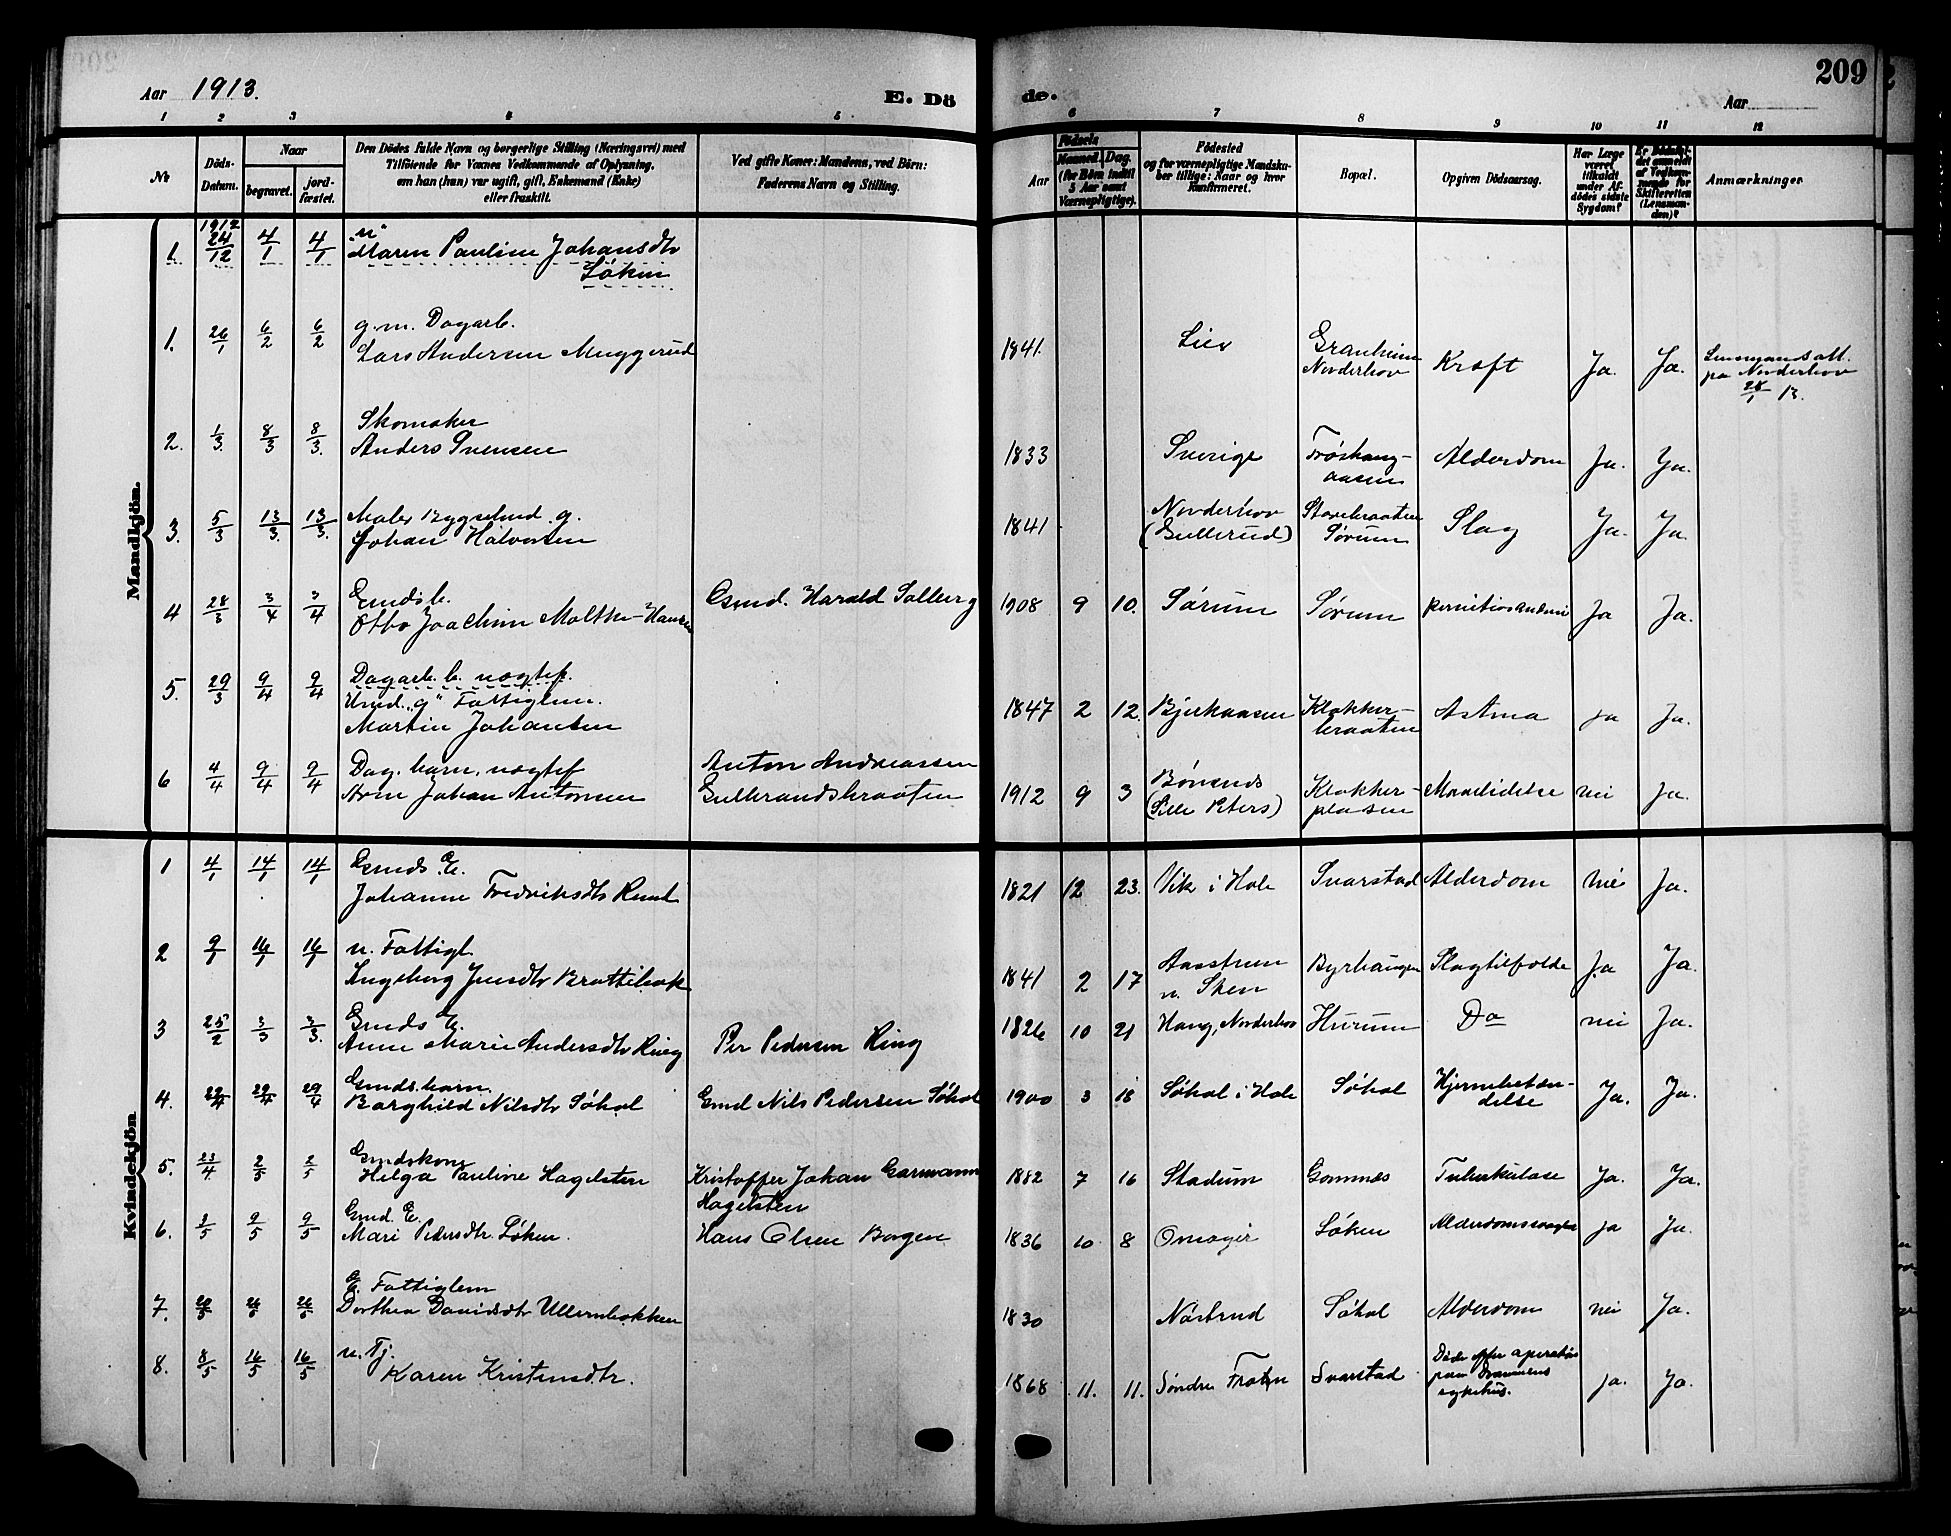 209
Aar 1913.
E. Dö
de.
Aar
1 2 3 4 5 6 7 8 9 10 11 12
№
Döds-Datum.
Naar
begravet.
jord-fæstet.
Den Dödes fulde Navn og borgerlige Stilling (Næringsvei) med
Tilföiende for Voxnes Vedkommende af Oplysning,
om han (hun) var ugift, gift, Enkemand (Enke)
eller fraskilt.
Ved gifte Koner: Mandens, ved Börn:
Faderens Navn og Stilling.
Aar
Födsels
Maaned. Dag.
(for Börn indtil
5 Aar samt
Værnepligtige).
Födested
og for værnepligtige Mandska-
ber tillige: Naar og hvor
konfirmeret.
Bopæl.
Opgiven Dödsaarsag.
Har Læge
været
tilkaldt
under Af-
dödes sidste
Sygdom?
Er Dödsfal-
det anmeldt
af Vedkom-
mende for
Skifteretten
(Lensman-
den)?
Anmærkninger
Mandkjön.
1. 1912 24/12 4/1 4/1 "u" Maren Pauline Johansdtr
Løken
1. 26/1 6/2 6/2 g.m. Dagarb.
Lars Andersen Muggerud 1841. Lier Granheim Norderhov Kræft Ja. Ja. Lensmands att.
fra Norderhov
28/1 13.
2. 1/3 8/3 8/3 Skomaker
Anders Svensen 1833 Sverige Frøshaug-
aasen Alderdom Ja. Ja.
3. 5/3 13/3 13/3 Maler Bygselmd. g.
Johan Halvorsen 1841 Norderhov
(Gullerud) Sørum Slag Ja. Ja.
4 28/3 3/4 3/4 Gmdsb.
Otto Joachim Moltke-Hansen Gmd. Harald Solberg 1908 9 10. Sørum Sørum Ja Ja.
5. 29/3 9/4 9/4 Dagarb. b. uægtef.
Umd. "g" Fattiglem.
Martin Johansen 1847 2 12. Bjerkaasen Klokker-
braaten Astma ja Ja.
6 4/4 9/4 9/4 Dag. barn, uægtef
Arne Johan Antonsen Anton Andreassen
Gulbrandsbraaten 1912 9 3 Bønsnes
(Lille Peters) Klokker-
plassen Mavelidelse nei Ja.
Kvindekjön
1 4/1 14/1 14/1 Gmds E.
Johanne Fredriksdtr Rund 1821 12 23. Vik i Hole Svarstad Alderdom nei Ja.
2 9/1 16/1 16/1 u. Fattigl.
Ingeborg Jensdtr Brattebak 1841 2 17 Aasstuen
u. Sten Byrhaugen Slagtilfælde Ja Ja.
3 25/2 3/3 3/3 Gmds E.
Anne Marie Andersdtr Ring Per Pedersen Ring 1826 10 21 Haug, Norderhov Hurum Do nei Ja.
4. 22/4 29/4 29/4 Gmds. barn
Borghild Nilsdtr Søhol Gmd Nils Pedersen Søhol 1900 3 18 Søhol i Hole Søhol Hjernebetæn-
delse Ja. Ja.
5. 23/4 2/5 2/5 Gmdskone
Helga Pauline Hagelsten Kristoffer Johan Garmann
Hagelsten 1882 7 16 Stadum Gomnes Tuberkulose Ja. Ja.
6. 3/5 9/5 9/5 Gmd. E.
Mari Pedersdtr. Løken. Hans Olsen Borgen 1836 10 8 Onsager Løken ja Ja.
7. 20/5 26/5 26/5 E. Fattiglem
Dorthea Davidsdtr Ullernbakken 1830 Næstrud Søhol Alderdom nei Ja.
8. 8/5 16/5 16/5 u. Tj.
Karen Kristensdtr. 1868 11. 11. Søndre Froten Svarstad Døde efter operation
paa Drammens
sykehus. ja. Ja.